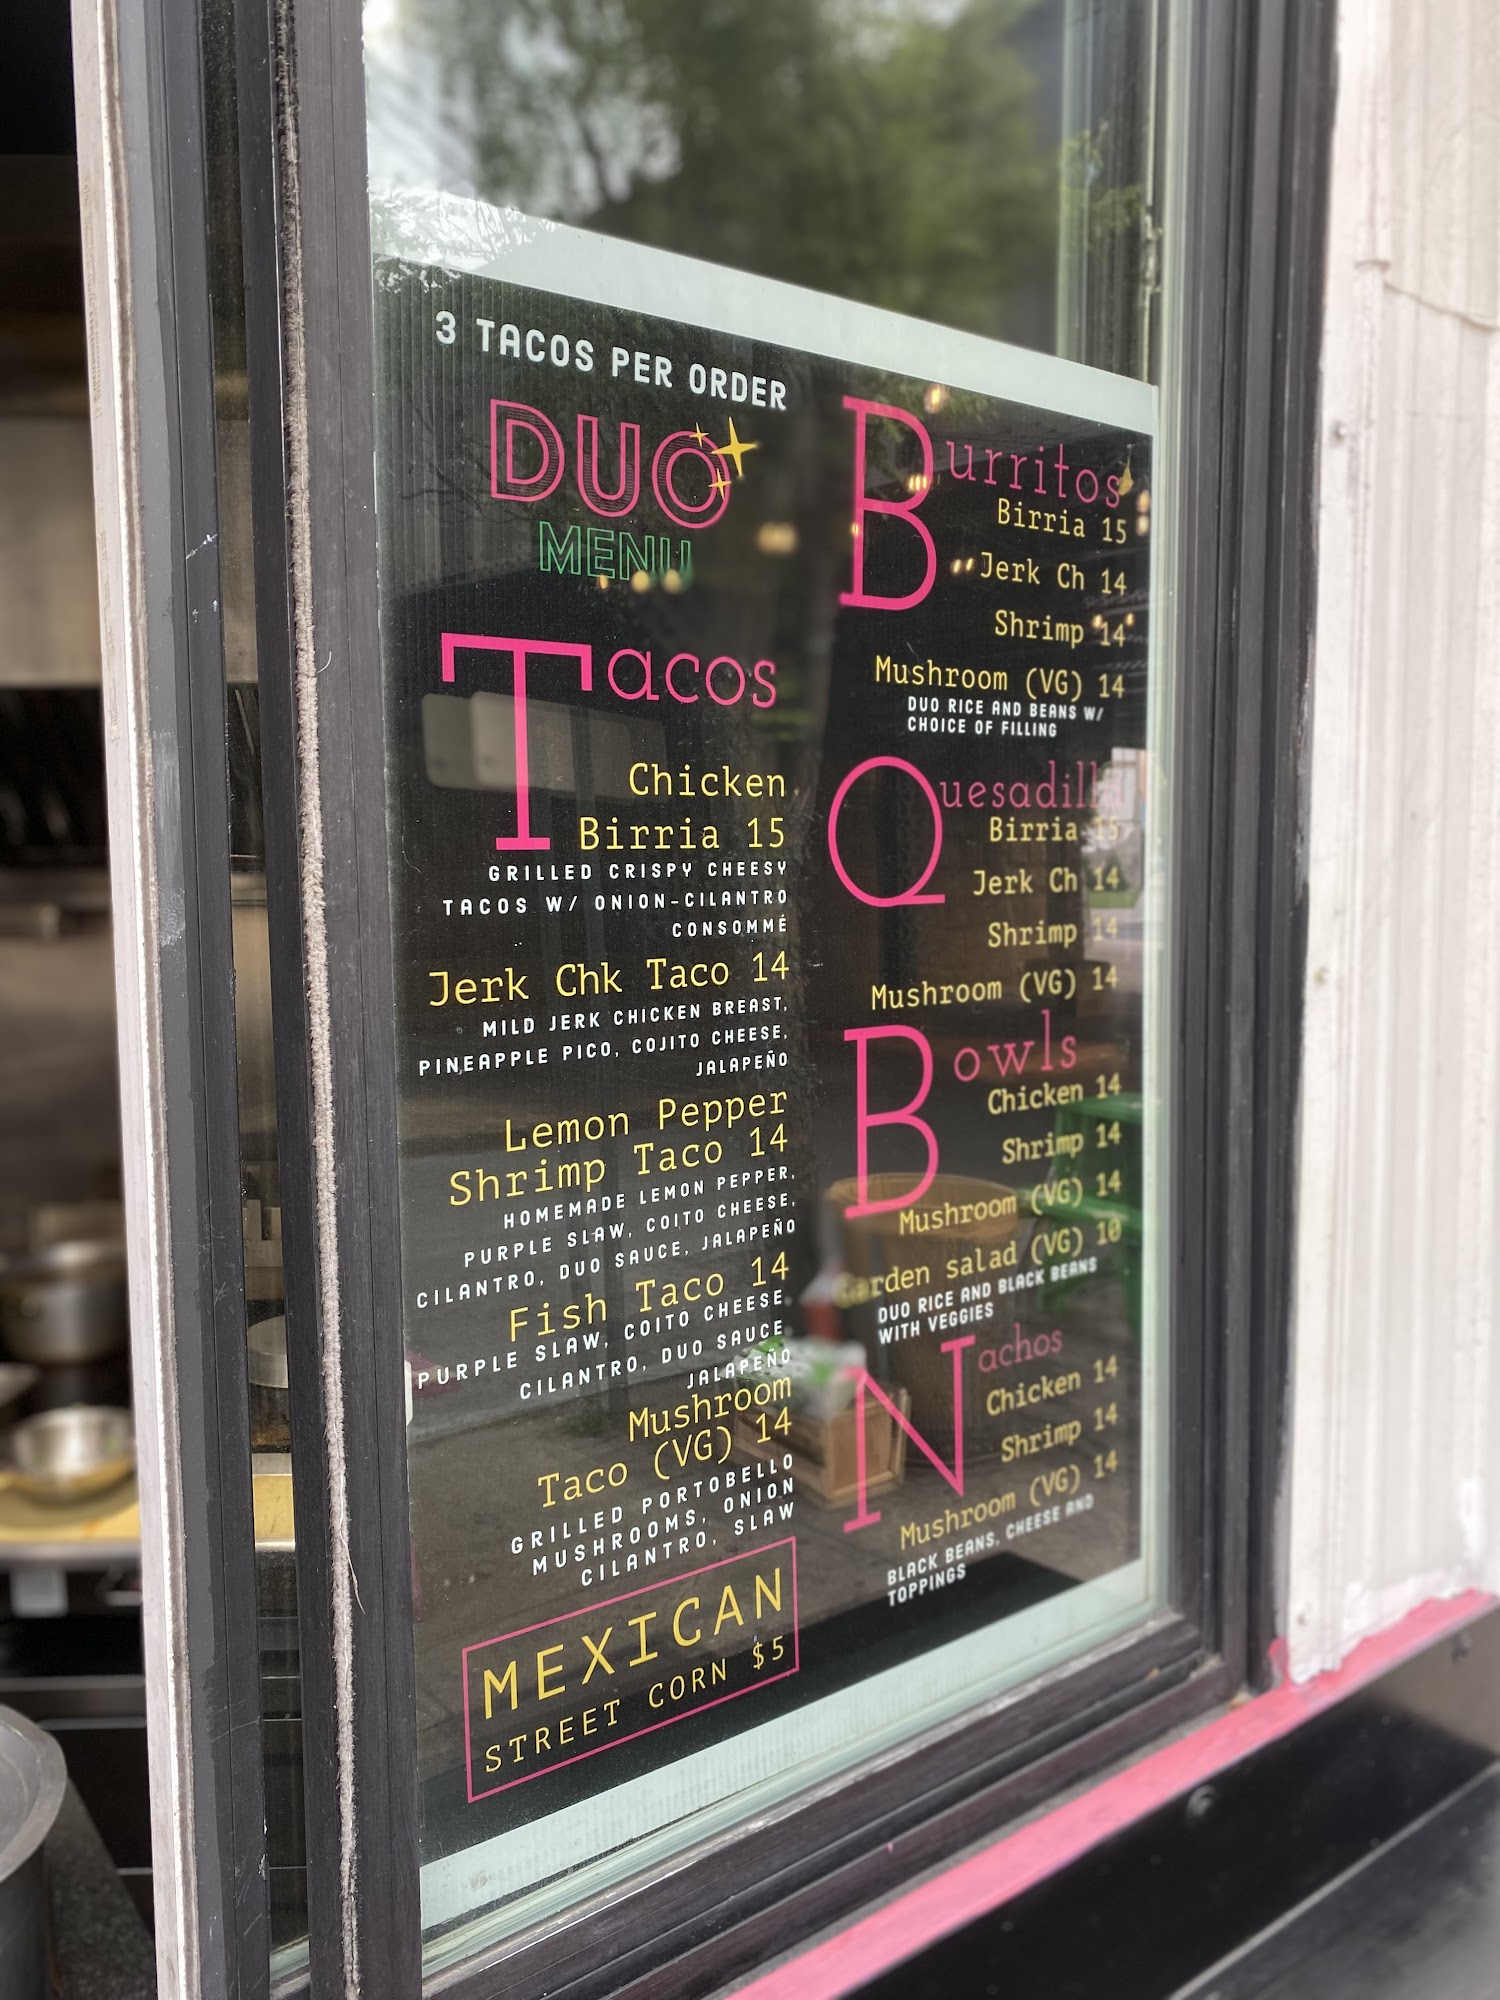 3 TACOS PER ORDER
DUO
MENU
Tacos
Chicken
Birria 15
GRILLED CRISPY CHEESY
TACOS W/ ONION-CILANTRO
CONSOMMÉ
Jerk Chk Taco 14
MILD JERK CHICKEN BREAST,
PINEAPPLE PICO, COJITO CHEESE,
JALAPEÑO
Lemon Pepper
Shrimp Taco 14
HOMEMADE LEMON PEPPER,
PURPLE SLAW, COITO CHEESE,
CILANTRO, DUO SAUCE, JALAPEÑO
Fish Taco 14
PURPLE SLAW, COITO CHEESE,
CILANTRO, DUO SAUCE,
JALAPEÑO
Mushroom
Taco (VG) 14
GRILLED PORTOBELLO
MUSHROOMS, ONION
CILANTRO, SLAW
MEXICAN
STREET CORN $5
Burritos
Birria 15
Jerk Ch 14
Shrimp 14
Mushroom (VG) 14
DUO RICE AND BEANS W/
CHOICE OF FILLING
Quesadilla
Birria 15
Jerk Ch 14
Shrimp 14
Mushroom (VG) 14
Bowls
Chicken 14
Shrimp 14
Mushroom (VG) 14
Garden salad (VG) 10
DUO RICE AND BLACK BEANS
WITH VEGGIES
Nachos
Chicken 14
Shrimp 14
Mushroom (VG) 14
BLACK BEANS, CHEESE AND
TOPPINGS